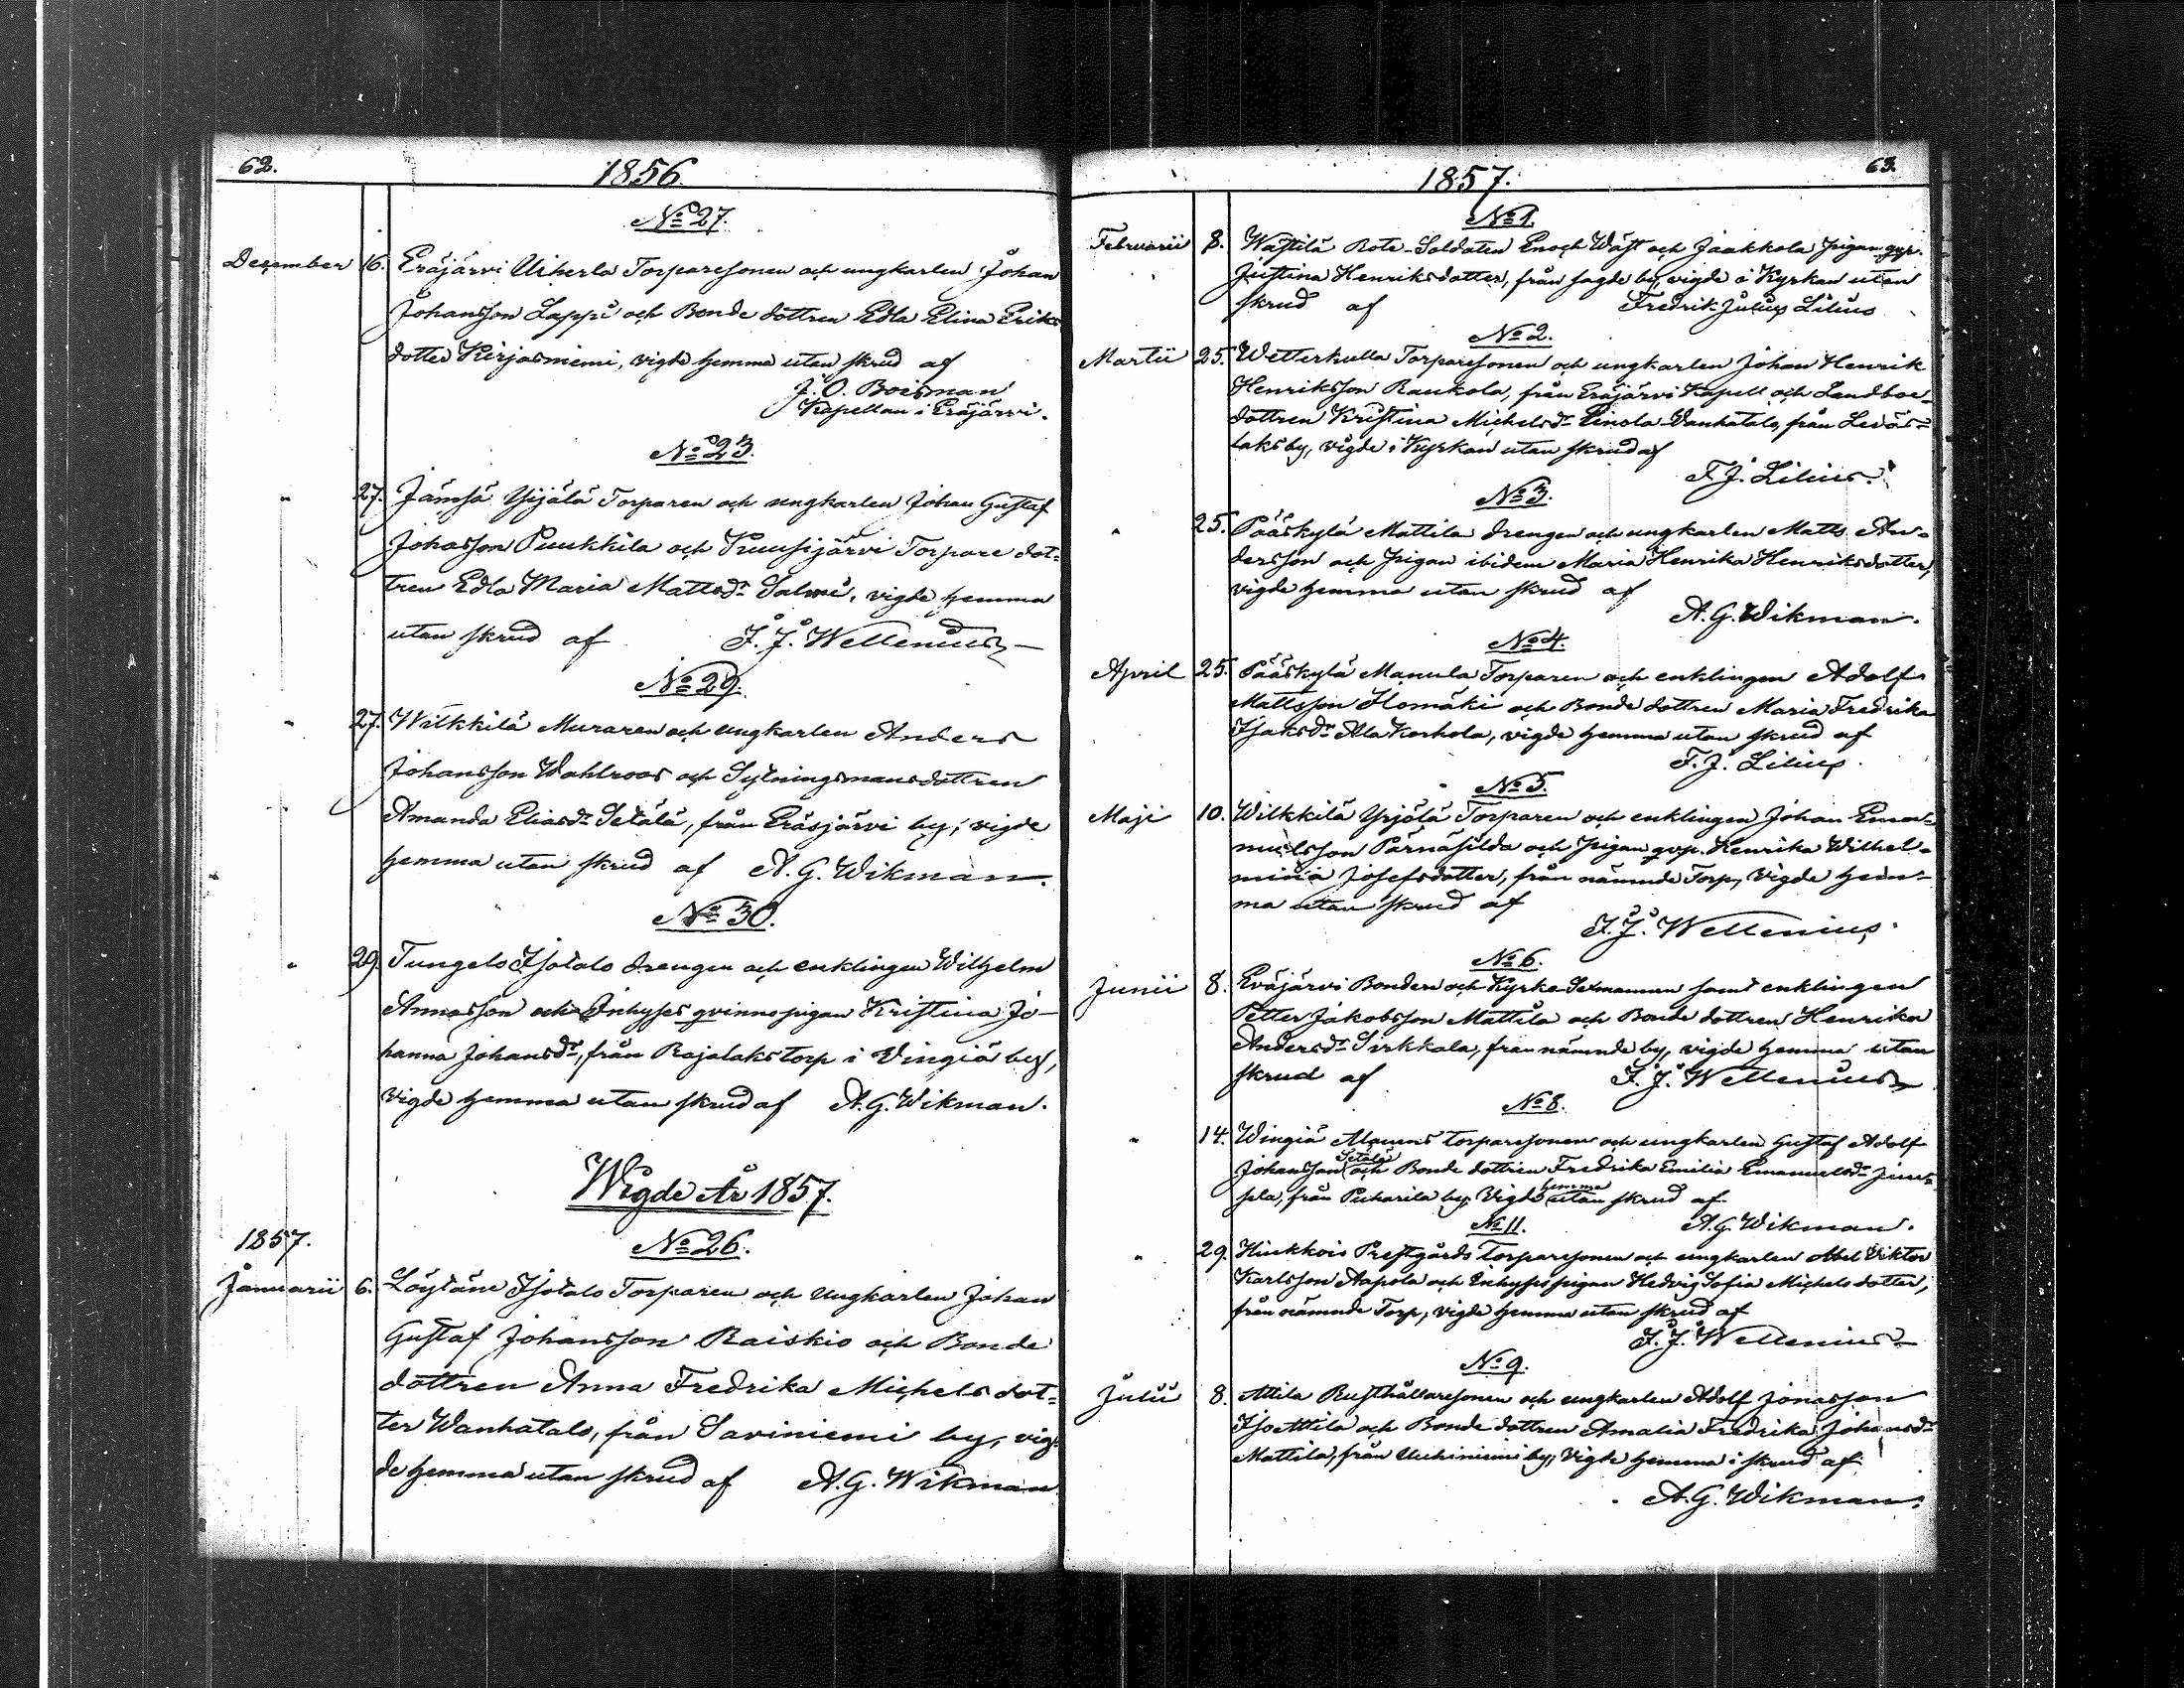 62.
1856.
No 27.
December 16. Eräjärvi Uiherla Torparesonen och ungkarlen Johan
Johansson Lappi och Bonde dottren Edla Elina Eriks
dotter Kirjasniemi, vigde hemma utan skrud af
J. O. Boisman
Kapellan i Eräjärvi.
No 23.
" 27. Jämsä Yijälä Torparen och ungkarlen Johan Gustaf
Johasson Puukkila och Kuusijärvi Torpare dot=
tren Edla Maria Mattsdr Salmi, vigde hemma
utan skrud af F. J. Wellenius
No 29.
" 27. Wilkkilä Muraren och ungkarlen Anders
Johansson Wahlroos och Sytningsmansdottren
Amanda Eliasdr Setälä, från Eräsjärvi by, vigde
hemma utan skrud af A. G. Wikman.
No 30.
" 29. Tungelo Isotalo drengen och enklingen Wilhelm
Annasson och Inhyses qvinnspigan Kristina Jo-
hanna Johansdr, från Rajalaks torp i Vingiä by,
vigde hemma utan skrud af A. G. Wikman.
Wigde År 1857.
1857.
No 26.
Januarii 6. Löytäne Isotalo Torparen och Ungkarlen Johan
Gustaf Johansson Raiskio och Bonde
dottren Anna Fredrika Michels dot=
ter Wanhatalo, från Saviniemi by, vig=
de hemma utan skrud af A. G. Wikman
63.
1857.
No 1.
Februarii 8. Wästilä Rote-Soldaten Enoch Wäst och Jaakkola pigan qvp.
Justina Henriksdotter, från sagde by, vigde i Kyrkan utan
skrud af Fredrik Julius Lilius
No 2.
Martii 25. Wetterkulla Torparesonen och ungkarlen Johan Henrik
Henriksson Raukola, från Eräjärvi Kapell och Landboe-
dottren Kristina Michelsdr Einola Wanhatalo, från Leväs=
laks by, vigde i Kyrkan utan skrud af
F. J. Lilius.
No 3.
" 25. Pääskylä Mattila drengen och ungkarlen Matts An-
dersson och pigan ibidem Maria Henrika Henriksdotter,
vigde hemma utan skrud af
A. G. Wikman.
No 4.
April 25. Pääskylä Manula Torparen och enklingen Adolf
Mattsson Homäki och Bonde dottren Maria Fredrika
Isaksdr Ala Korhola, vigde hemma utan skrud af
F. J. Lilius.
No 5.
Maji 10. Wilkkilä Yrjälä Torparen och enklingen Johan Ema-
nuelsson Pärnäsilda och pigan qvp. Henrika Wilhel-
mina Josefsdotter, från nämnde Torp, vigde hem-
ma utan skrud af
F. J. Wellenius.
No 6.
Junii 8. Eräjärvi Bonden och Kyrko-Sexmannen samt enklingen
Petter Jakobsson Mattila och Bonde dottren Henrika
Andersdr Sirkkala, från nämnde by, vigde hemma utan
skrud af F. J. Wellenius
No 8.
" 14. Wingiä Mauns torparesonen och ungkarlen Gustaf Adolf
Johansson Setälä och Bonde dottren Fredrika Emilia Emanuelsdr Juus=
sela, från Puharila by. Vigde hemma utan skrud af
A. G. Wikman.
No 11.
" 29. Hirkkois Prestgårds Torparesonen och ungkarlen Abel Viktor
Karlsson Aapola och Inhysespigan Hedvig Sofia Michels dotter,
från nämnde Torp, vigde hemma utan skrud af
F. J. Wellenius
No 9.
Julii 8. Attila Rusthållaresonen och ungkarlen Adolf Jonasson
Iso Attila och Bonde dottren Amalia Fredrika Johansdr
Mattila, från Uuhiniemi by, Vigde hemma i skrud af
A. G. Wikman.